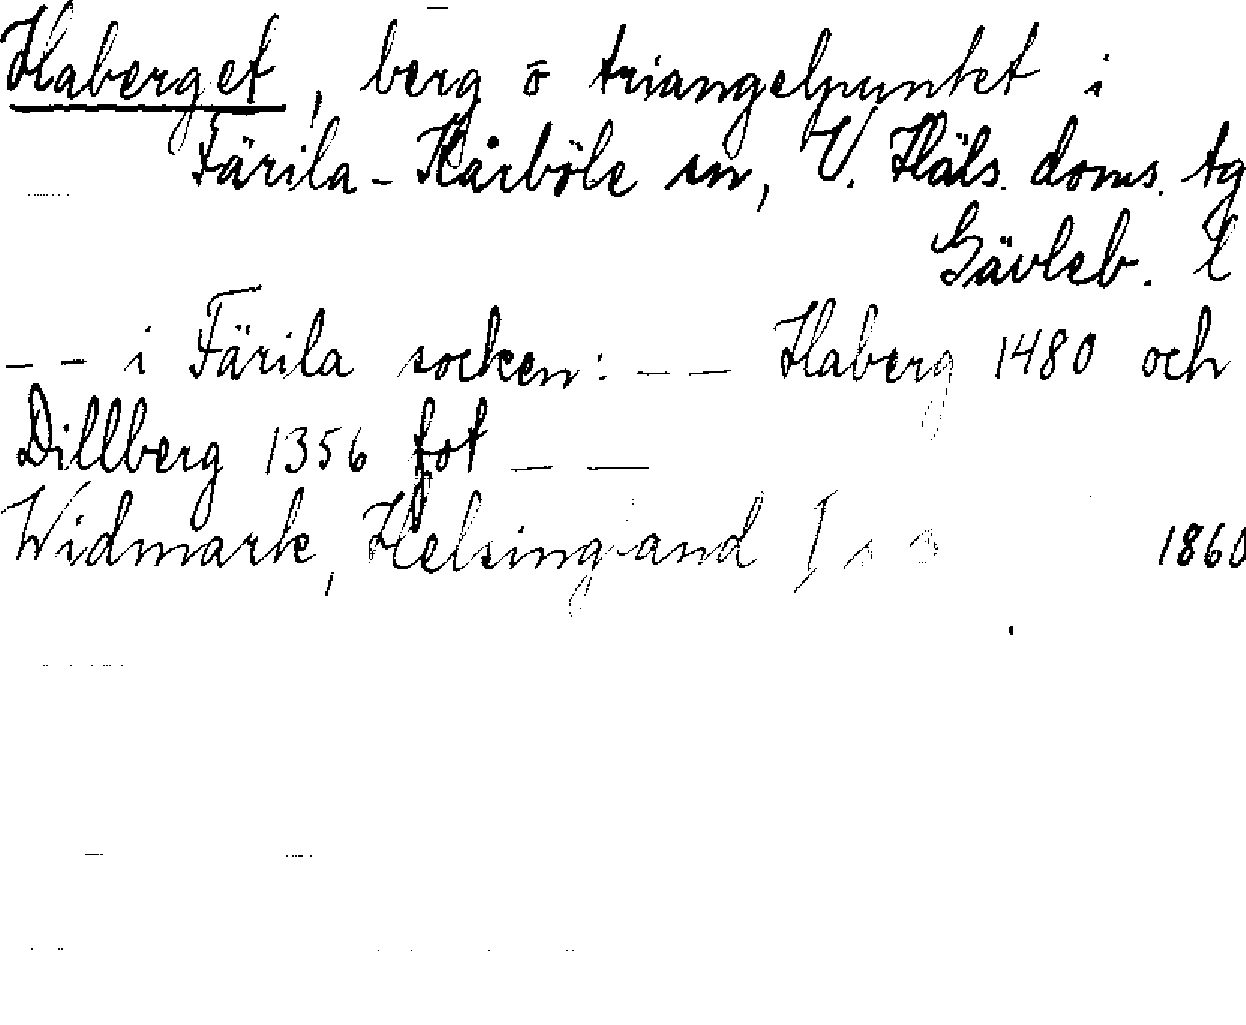 Haberget, berg ō triangelpunkt i
Färila-Kårböle sn, V. Häls. doms. tg
Gävleb. l
-- i Färila socken: -- Haberg 1480 och
Dillberg 1356 fot --
Widmark, Helsingland I s 1860